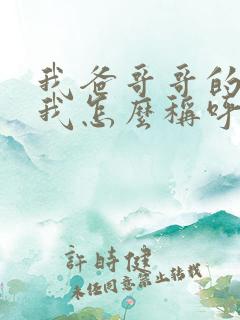 我爸哥哥的
我怎麼稱呼
許時健
未任同意禁止转载